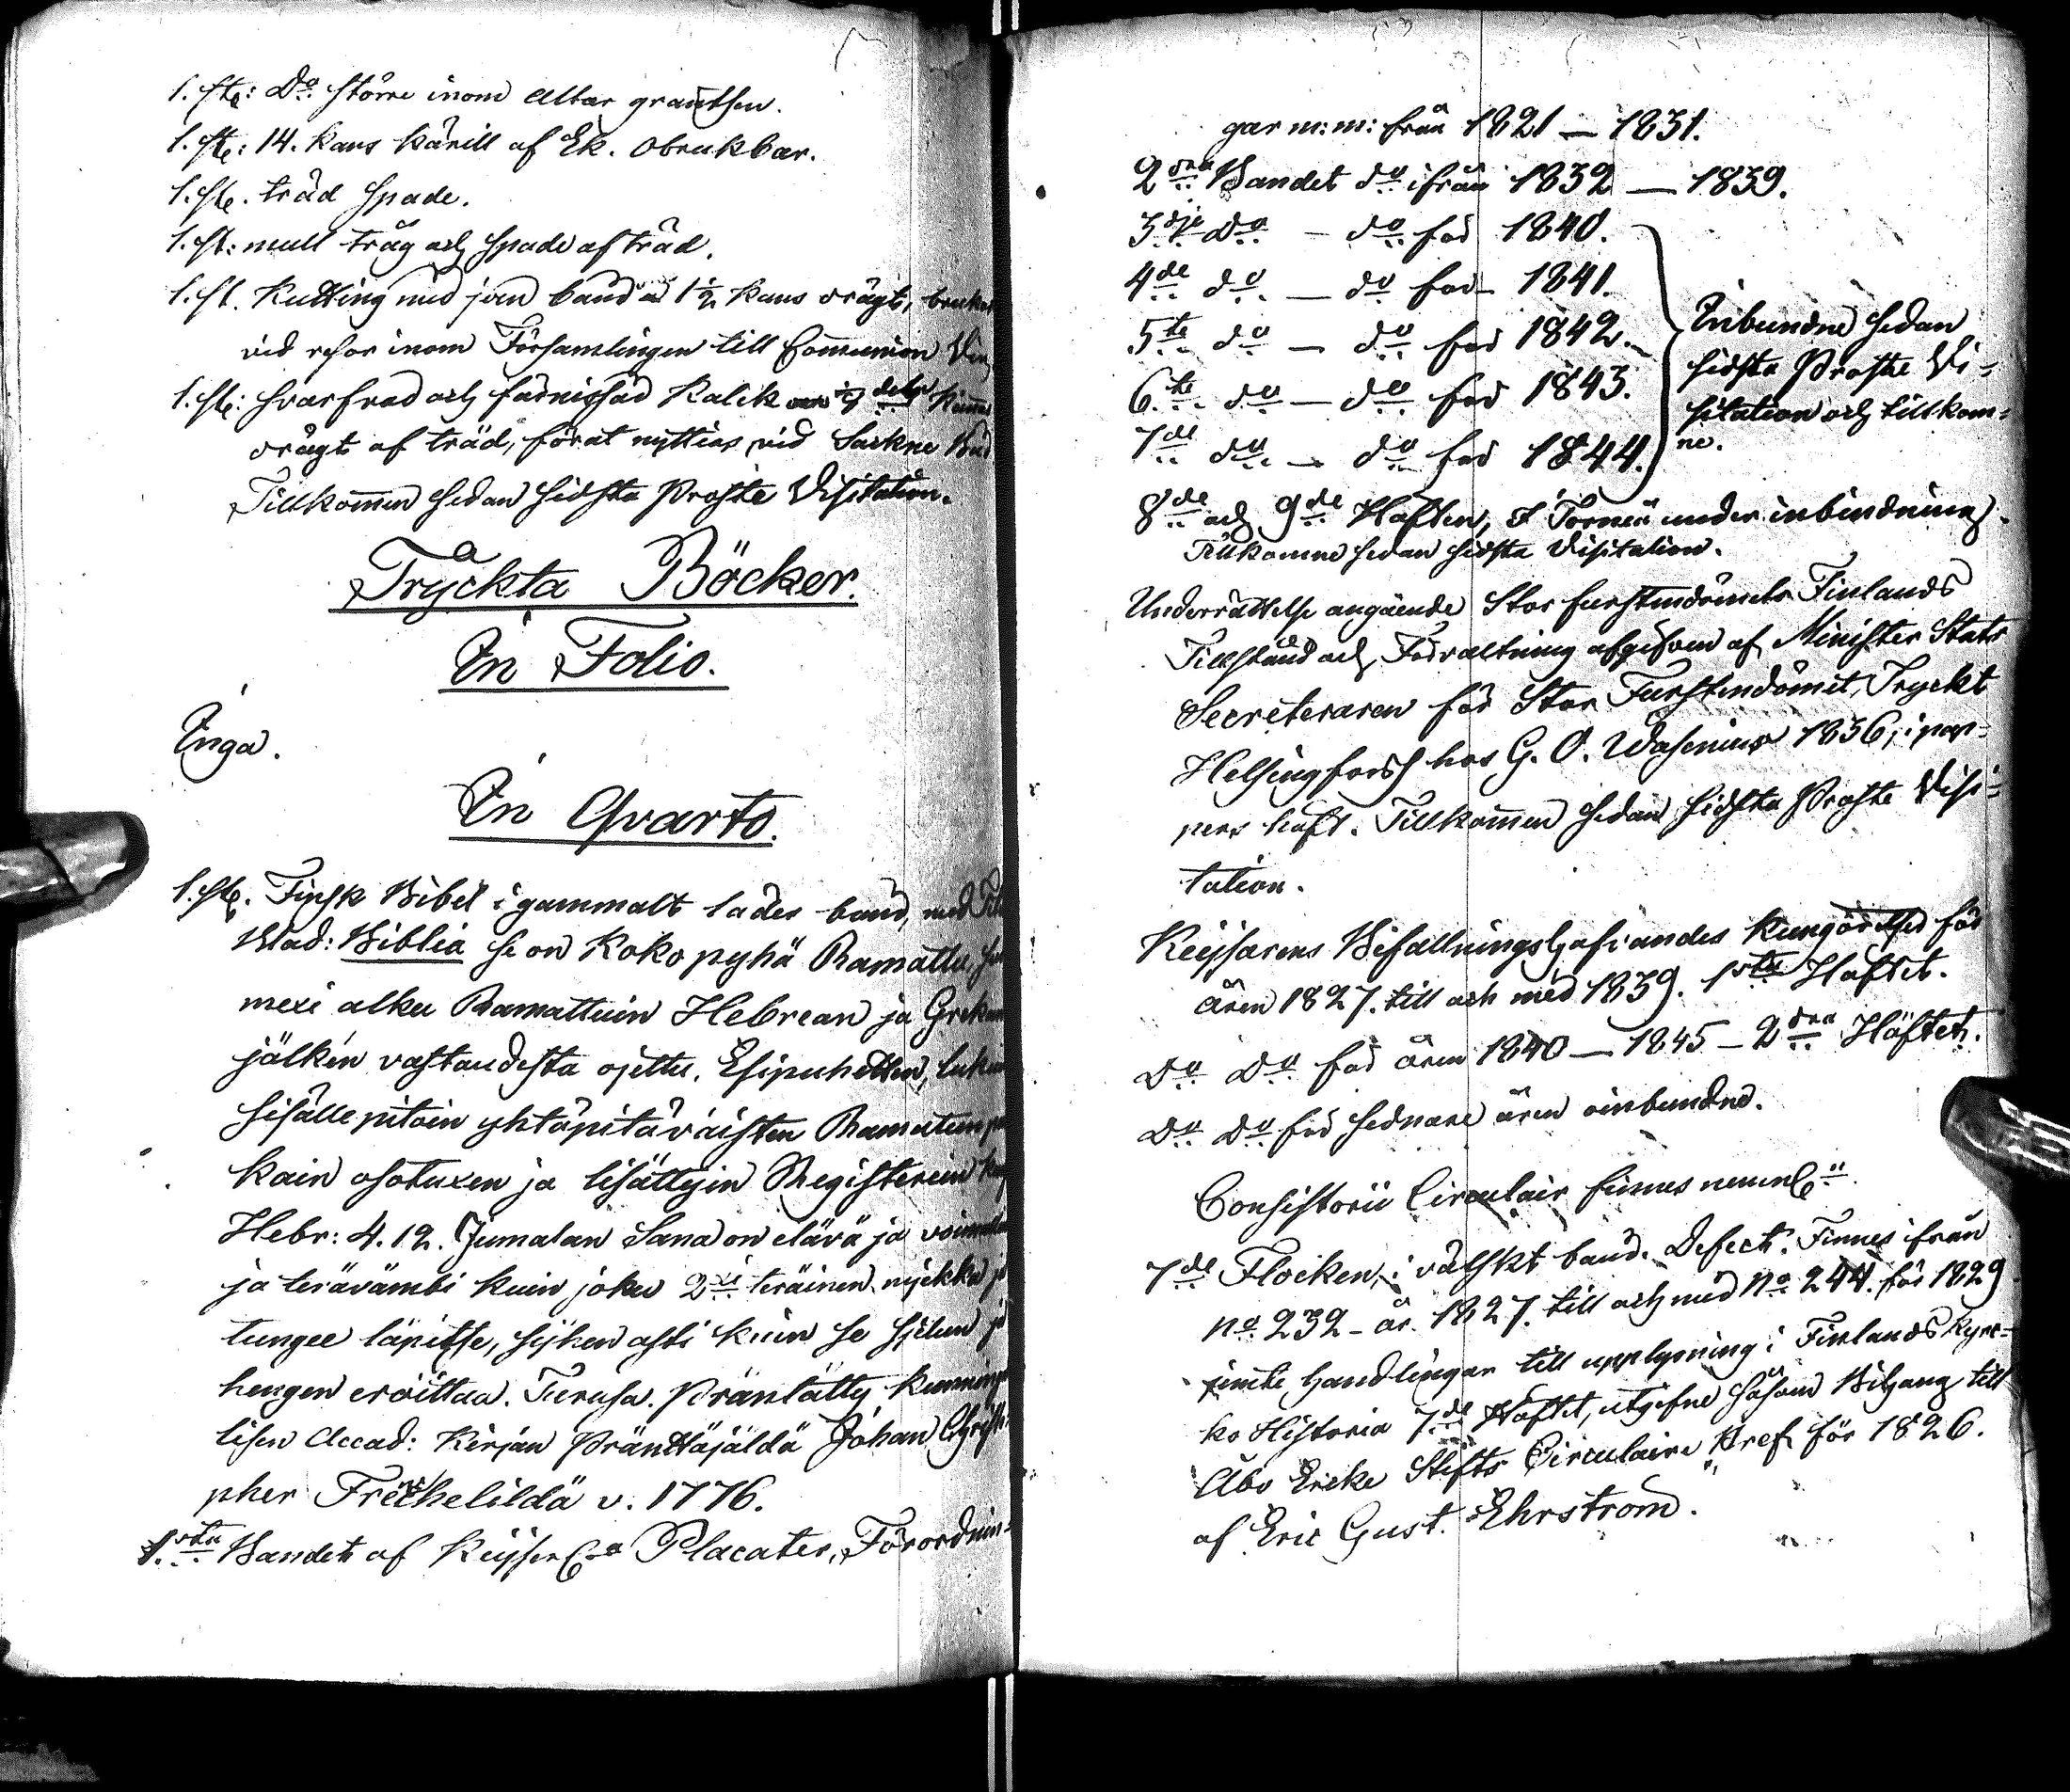 1. ste: Do större inom Altar grantsen.
1. ste: 14. Kans kärill af Ek. obrukbar.
1. ste. träd Spade.
1. st: mull tråg och Spade af träd.
1. st. Kutting med jern band a 1 1/2 Kans drägt,
vid resor inom Församlingen till Communion
1. ste: Svarfvad och färnissad Kalk
drägt af träd, för at nyttias vid
Tillkommen sedan sidsta Proste Visitation.
Tryckta Böcker.
In Folio.
Inga.
In Qvarto.
1. ste. Finsk Bibel i gammalt läder band, med
Blad: Biblia se on Koko pyhä Ramattu,
mexi alku Ramattuin Hebrean ja Grekan
jälkén vastaudesta ojettu, Esipuhetten,
sisälle pitoin yhtäpitäväisten Ramatun
kain osotuxen ja lisättyin Registerein
Hebr: 4. 12. Jumalan Sana on elävä ja
ja terävämbi kuin joku 2xi teräinen miekka
tungee läpitse, sijhen asti kuin se sjelun
hengen eroittaa. Turusa. Präntätty Kuning
lisen Accad: Kirjan Präntäjäldä Johan Christ
pher Frenckelildä v. 1776.
1.sta Bandet af Keijserl:a Placater, Förordnin=
gar m:m: från 1821 — 1831.
2dra Bandet do ifrån 1832 — 1839.
3dje do — do för 1840.
4de do. — do för 1841.
5te do — do för 1842.
6te do — do för 1843.
7de do — do för 1844.
Inbundne sedan
sidsta Proste Vi=
sitation och tillkom=
ne.
8de och 9de Häften, i Torneå under inbindning.
Tillkomne sedan sidsta Visitation.
Underrättelse angående Stor furstendömets Finlands
Tillstånd och Förvaltning afgifven af Minister Stats
Secreteraren för Stor Furstendömet, Tryckt
Helsingfors hos G. O. Wasenius 1836, i pap=
pers häft. Tillkommen sedan sidsta Proste Visi=
tation.
Keijsarens Befallningshafvandes kungörelser för
åren 1827. till och med 1839. 1sta Häftet.
Do Do för åren 1840 — 1845 — 2dra Häftet.
Do Do för sednare åren oinbundne.
Consistorii Circulair finnes neml:
7de Flocken, i välskt band. Defect. Finnes ifrån
No. 232 - år 1827. till och med No. 244. för 1829
jemte Handlingar till upplysning i Finlands Kyrc=
ko Historia 7de Häftet, utgifne såsom Bihang till
Åbo Ercke Stifts Circulaire Bref för 1826.
af Eric Gust. Ehrström.